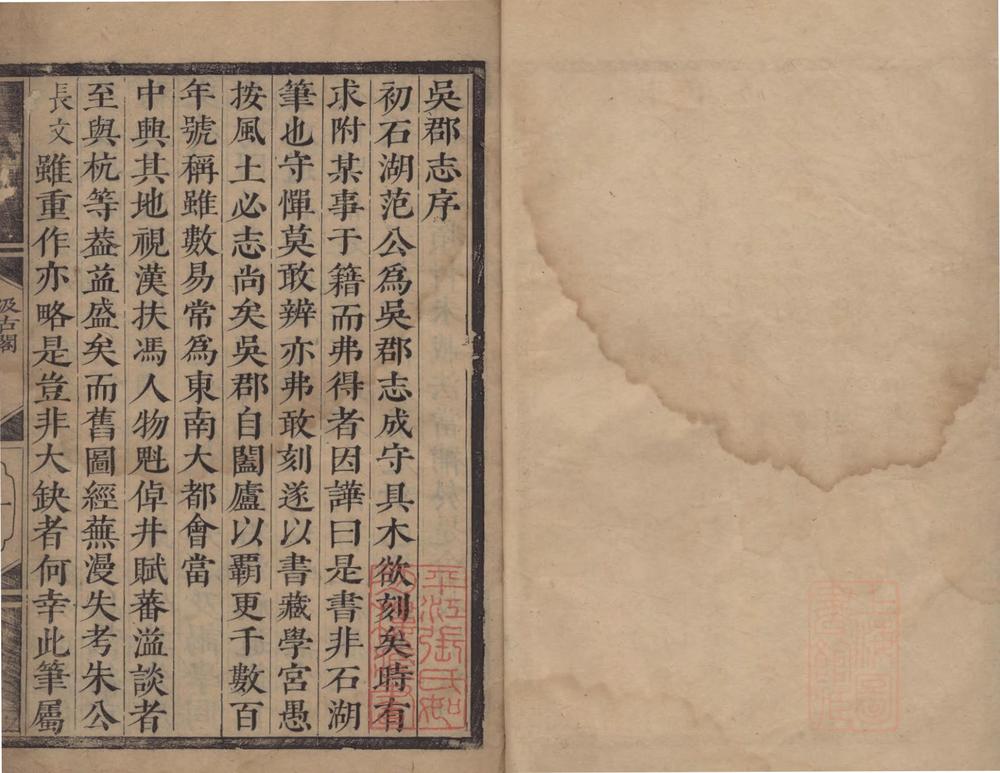 吳郡志序
初石湖范公爲吳郡志成守具木欲刻矣時有
求附某事于籍而弗得者因譁曰是書非石湖
筆也守憚莫敢辨亦弗敢刻遂以書藏學宮愚
按風土必志尚矣吳郡自闔廬以霸更千數百
年號稱雖數易常爲東南大都會當
中興其地視漢扶馮人物魁倬井賦蕃溢談者
至與杭等葢益盛矣而舊圖經蕪漫失考朱公
長文雖重作亦略是豈非大缺者何幸此筆屬
汲古閣